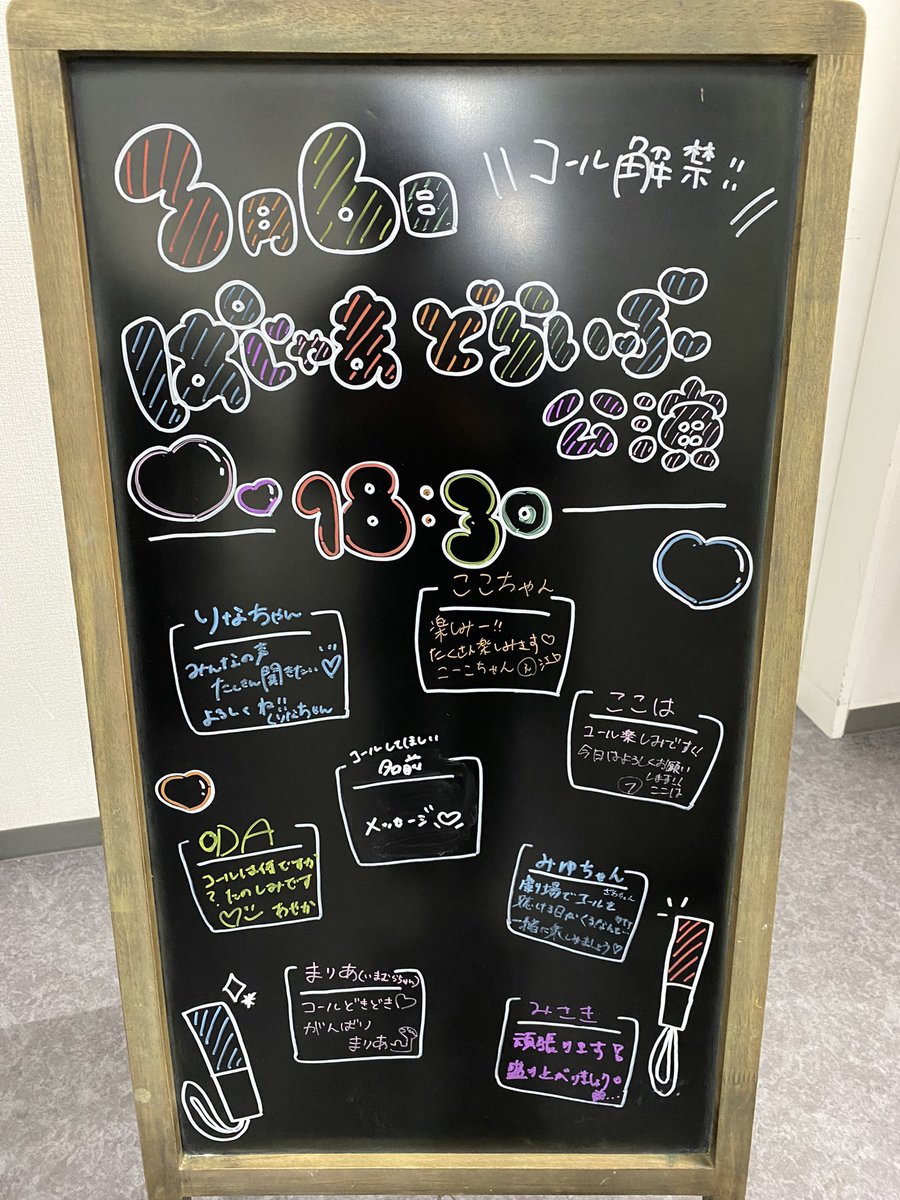 3月6日
コール解禁!!
ぱじゃまどらいぶ
公演
18:30
ここちゃん
楽しみー!!
たくさん楽しみます♡
こーこちゃん
りなちゃん
みんなの声
たくさん聞きたい♡
よろしくね!!
りなちゃん
ここは
コール楽しみです!!
今日はよろしくお願い
します!!
ここは
コールしてほしい
名前
メッセージ♡
ODA
コールは何ですか
?たのしみです
♡ あやか
みゆちゃん
劇場でコールを
聴ける日がくるなんて…
一緒に楽しみましょう♡
まりあ(いまむらちゃん)
コールどきどき♡
がんばり
まりあ
みさき
頑張ります!
盛り上がりましょう